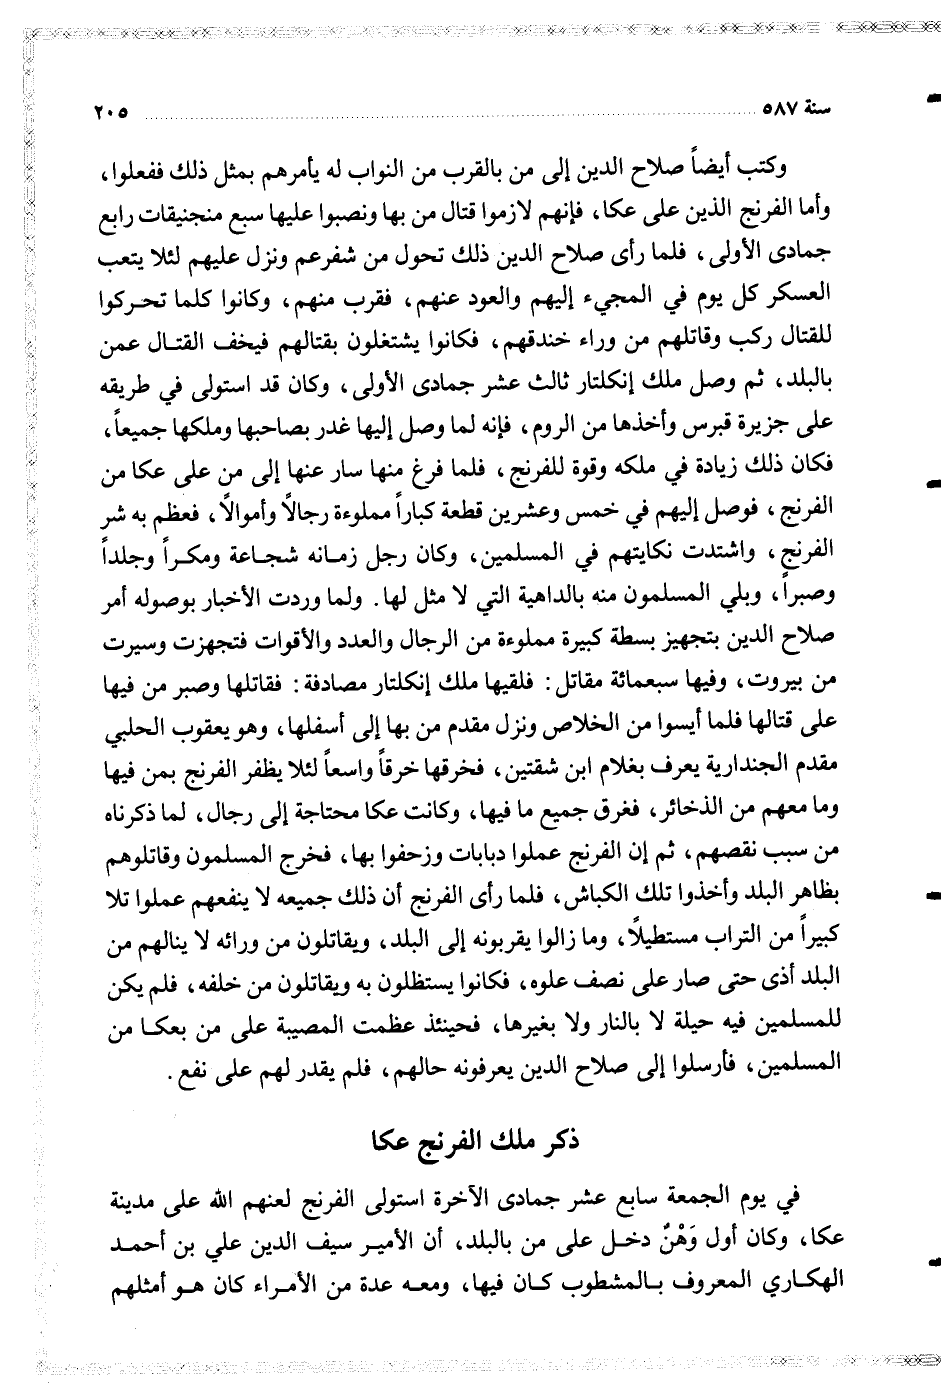 سنة ٥٨٧ ........ ٢٠٥
وكتب أيضاً صلاح الدين إلى من بالقرب من النواب له يأمرهم بمثل ذلك ففعلوا،
وأما الفرنج الذين على عكا، فإنهم لازموا قتال من بها ونصبوا عليها سبع منجنيقات رابع
جمادى الأولى، فلما رأى صلاح الدين ذلك تحول من شفرعم ونزل عليهم لئلا يتعب
العسكر كل يوم في المجيء إليهم والعود عنهم، فقرب منهم، وكانوا كلما تحركوا
للقتال ركب وقاتلهم من وراء خندقهم، فكانوا يشتغلون بقتالهم فيخف القتال عمن
بالبلد، ثم وصل ملك إنكلتار ثالث عشر جمادى الأولى، وكان قد استولى في طريقه
على جزيرة قبرس وأخذها من الروم، فإنه لما وصل إليها غدر بصاحبها وملكها جميعاً،
فكان ذلك زيادة في ملكه وقوة للفرنج، فلما فرغ منها سار عنها إلى من على عكا من
الفرنج، فوصل إليهم في خمس وعشرين قطعة كباراً مملوءة رجالاً وأموالاً، فعظم به شر
الفرنج، واشتدت نكايتهم في المسلمين، وكان رجل زمانه شجاعة ومكراً وجلداً
وصبراً، وبلي المسلمون منه بالداهية التي لا مثل لها. ولما وردت الأخبار بوصوله أمر
صلاح الدين بتجهيز بسطة كبيرة مملوءة من الرجال والعدد والأقوات فتجهزت وسيرت
من بيروت، وفيها سبعمائة مقاتل: فلقيها ملك إنكلتار مصادفة: فقاتلها وصبر من فيها
على قتالها فلما أيسوا من الخلاص ونزل مقدم من بها إلى أسفلها، وهو يعقوب الحلبي
مقدم الجندارية يعرف بغلام ابن شقتين، فخرقها خرقاً واسعاً لئلا يظفر الفرنج بمن فيها
وما معهم من الذخائر، فغرق جميع ما فيها، وكانت عكا محتاجة إلى رجال، لما ذكرناه
من سبب نقصهم، ثم إن الفرنج عملوا دبابات وزحفوا بها، فخرج المسلمون وقاتلوهم
بظاهر البلد وأخذوا تلك الكباش، فلما رأى الفرنج أن ذلك جميعه لا ينفعهم عملوا تلا
كبيراً من التراب مستطيلاً، وما زالوا يقربونه إلى البلد، ويقاتلون من ورائه لا ينالهم من
البلد أذى حتى صار على نصف علوه، فكانوا يستظلون به ويقاتلون من خلفه، فلم يكن
للمسلمين فيه حيلة لا بالنار ولا بغيرها، فحينئذ عظمت المصيبة على من بعكا من
المسلمين، فأرسلوا إلى صلاح الدين يعرفونه حالهم، فلم يقدر لهم على نفع.
ذكر ملك الفرنج عكا
في يوم الجمعة سابع عشر جمادى الآخرة استولى الفرنج لعنهم الله على مدينة
عكا، وكان أول وَهْنٌ دخل على من بالبلد، أن الأمير سيف الدين علي بن أحمد
الهكاري المعروف بالمشطوب كان فيها، ومعه عدة من الأمراء كان هو أمثلهم